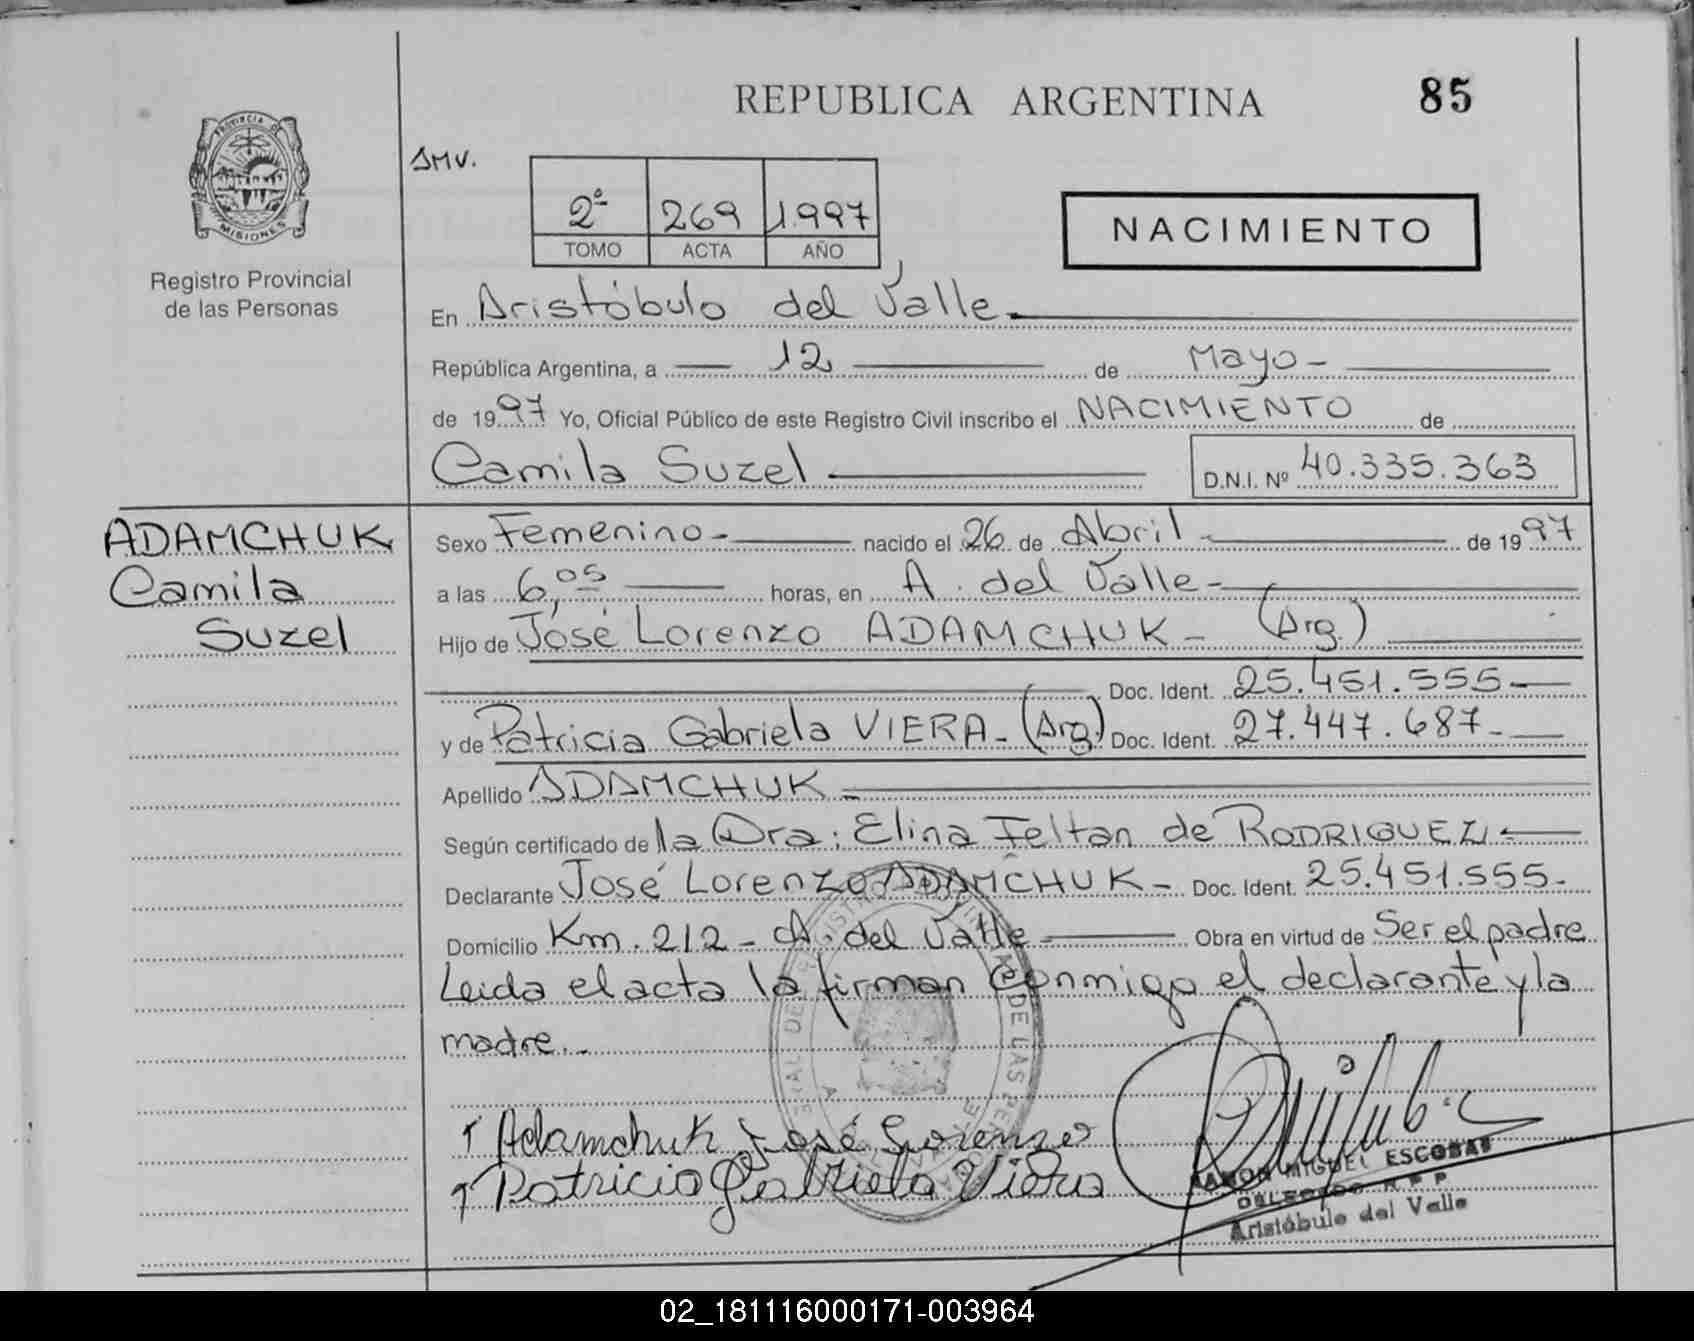 REPUBLICA ARGENTINA 85
PROVINCIA DE
MISIONES
Registro Provincial
de las Personas
SMV.
2º 269 1.997
TOMO ACTA AÑO
NACIMIENTO
En Aristóbulo del Valle
República Argentina, a 12 de Mayo
de 1997 Yo, Oficial Público de este Registro Civil inscribo el NACIMIENTO de
Camila Suzel D.N.I. Nº 40.335.363
ADAMCHUK
Camila
Suzel
Sexo Femenino nacido el 26 de Abril de 1997
a las 6,05 horas, en A. del Valle
Hijo de José Lorenzo ADAMCHUK (Arg.)
Doc. Ident. 25.451.555
y de Patricia Gabriela VIERA (Arg.) Doc. Ident. 27.447.687
Apellido ADAMCHUK
Según certificado de la Dra. Elina Feltan de RODRIGUEZ
Declarante José Lorenzo ADAMCHUK Doc. Ident. 25.451.555
Domicilio Km. 212 - A. del Valle Obra en virtud de Ser el padre
Leida el acta la firman conmigo el declarante y la
madre.
Adamchuk José Lorenzo
Patricia Gabriela Viera
RAMON MIGUEL ESCOBAR
DELEGADO R P P
Aristóbulo del Valle
02_181116000171-003964